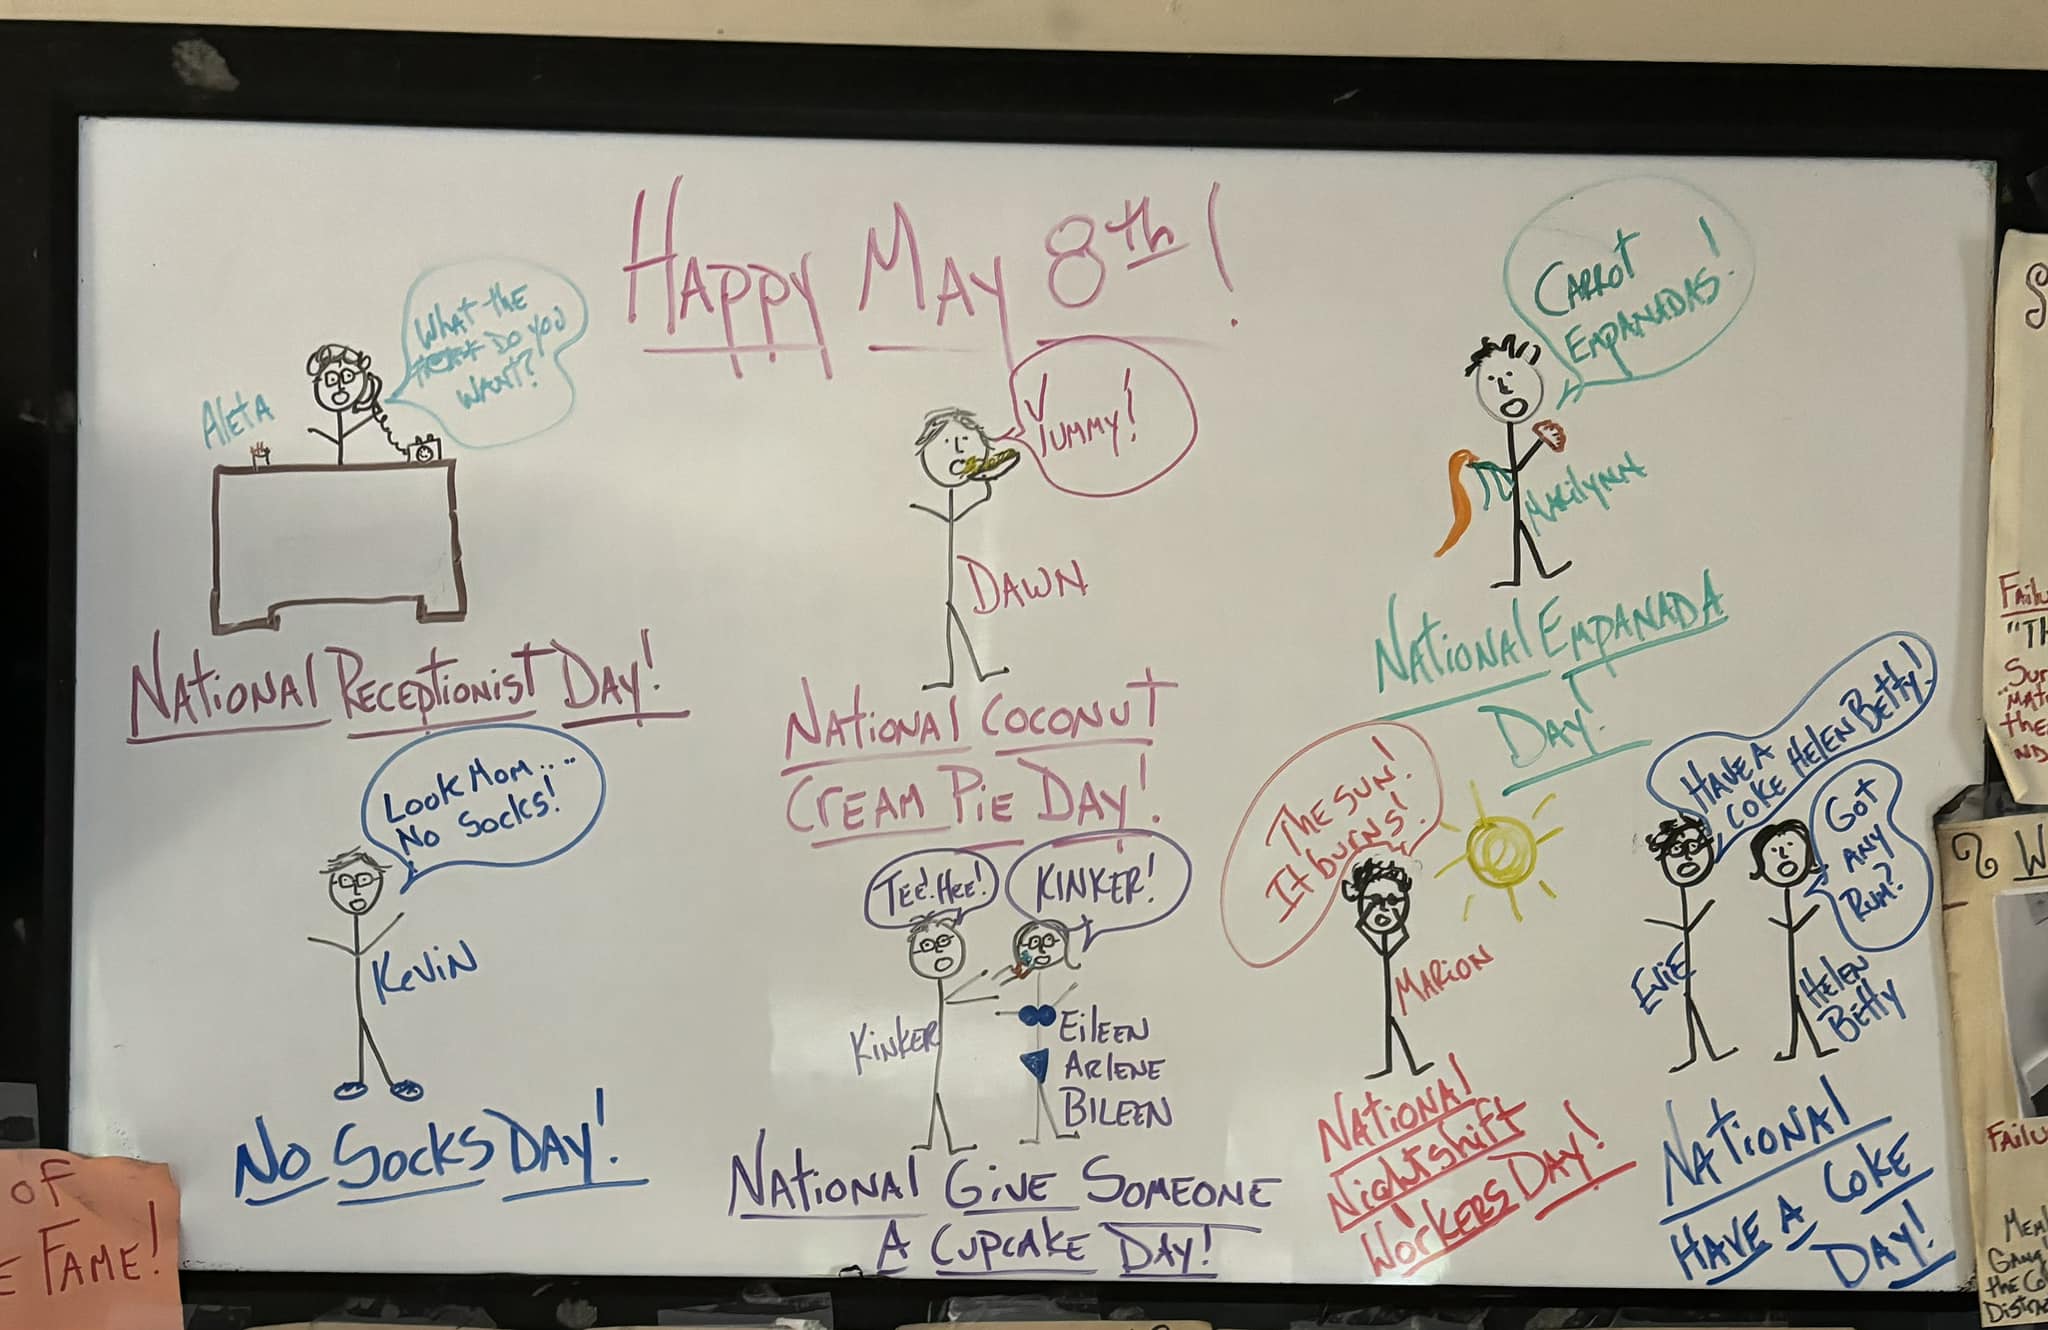 Happy May 8th!
What the
do you
want?
Aleta
National Receptionist Day!
Yummy!
Dawn
National Coconut
Cream Pie Day!
Carrot
Empanadas!
Marilynn
National Empanada
Day!
Look Mom....
No Socks!
Kevin
No Socks Day!
Tee! Hee!
Kinker!
Kinker
Eileen
Arlene
Bileen
National Give Someone
A Cupcake Day!
The sun!
It burns!
Marion
National
Nightshift
Workers Day!
Have a
Coke Helen Betty!
Got
any
Rum?
Evie
Helen
Betty
National
Have a Coke
Day!
of
Fame!